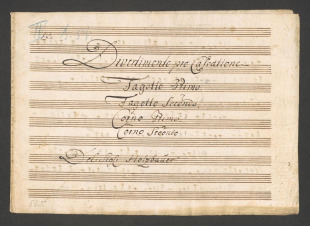 Divertimento per Cassatione
Fagotto Primo.
Fagotto Secondo.
Corno Primo
Corno Secondo.
Del Sig: Holzbauer